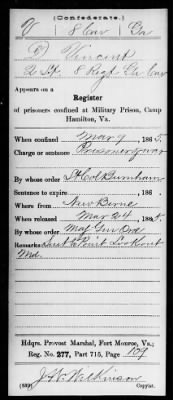 (Confederate.)
V 8 Cav Ga
D Vincent
2 Lt, 8 Regt. Ga Cav
Appears on a
Register
of prisoners confined at Military Prison, Camp
Hamilton, Va.
When confined Mar 9, 1865.
Charge or sentence Prisoner of war
By whose order Lt Col Burnham
Sentence to expire , 186 .
Where from New Berne
When released Mar 24, 1865.
By whose order Maj Gen Ord
Remarks: Sent to Point Lookout
Md.
Hdqrs. Provost Marshal, Fort Monroe, Va.;
Reg. No. 277, Part 715, Page 109
J. W. Wilkinson
(639) Copyist.